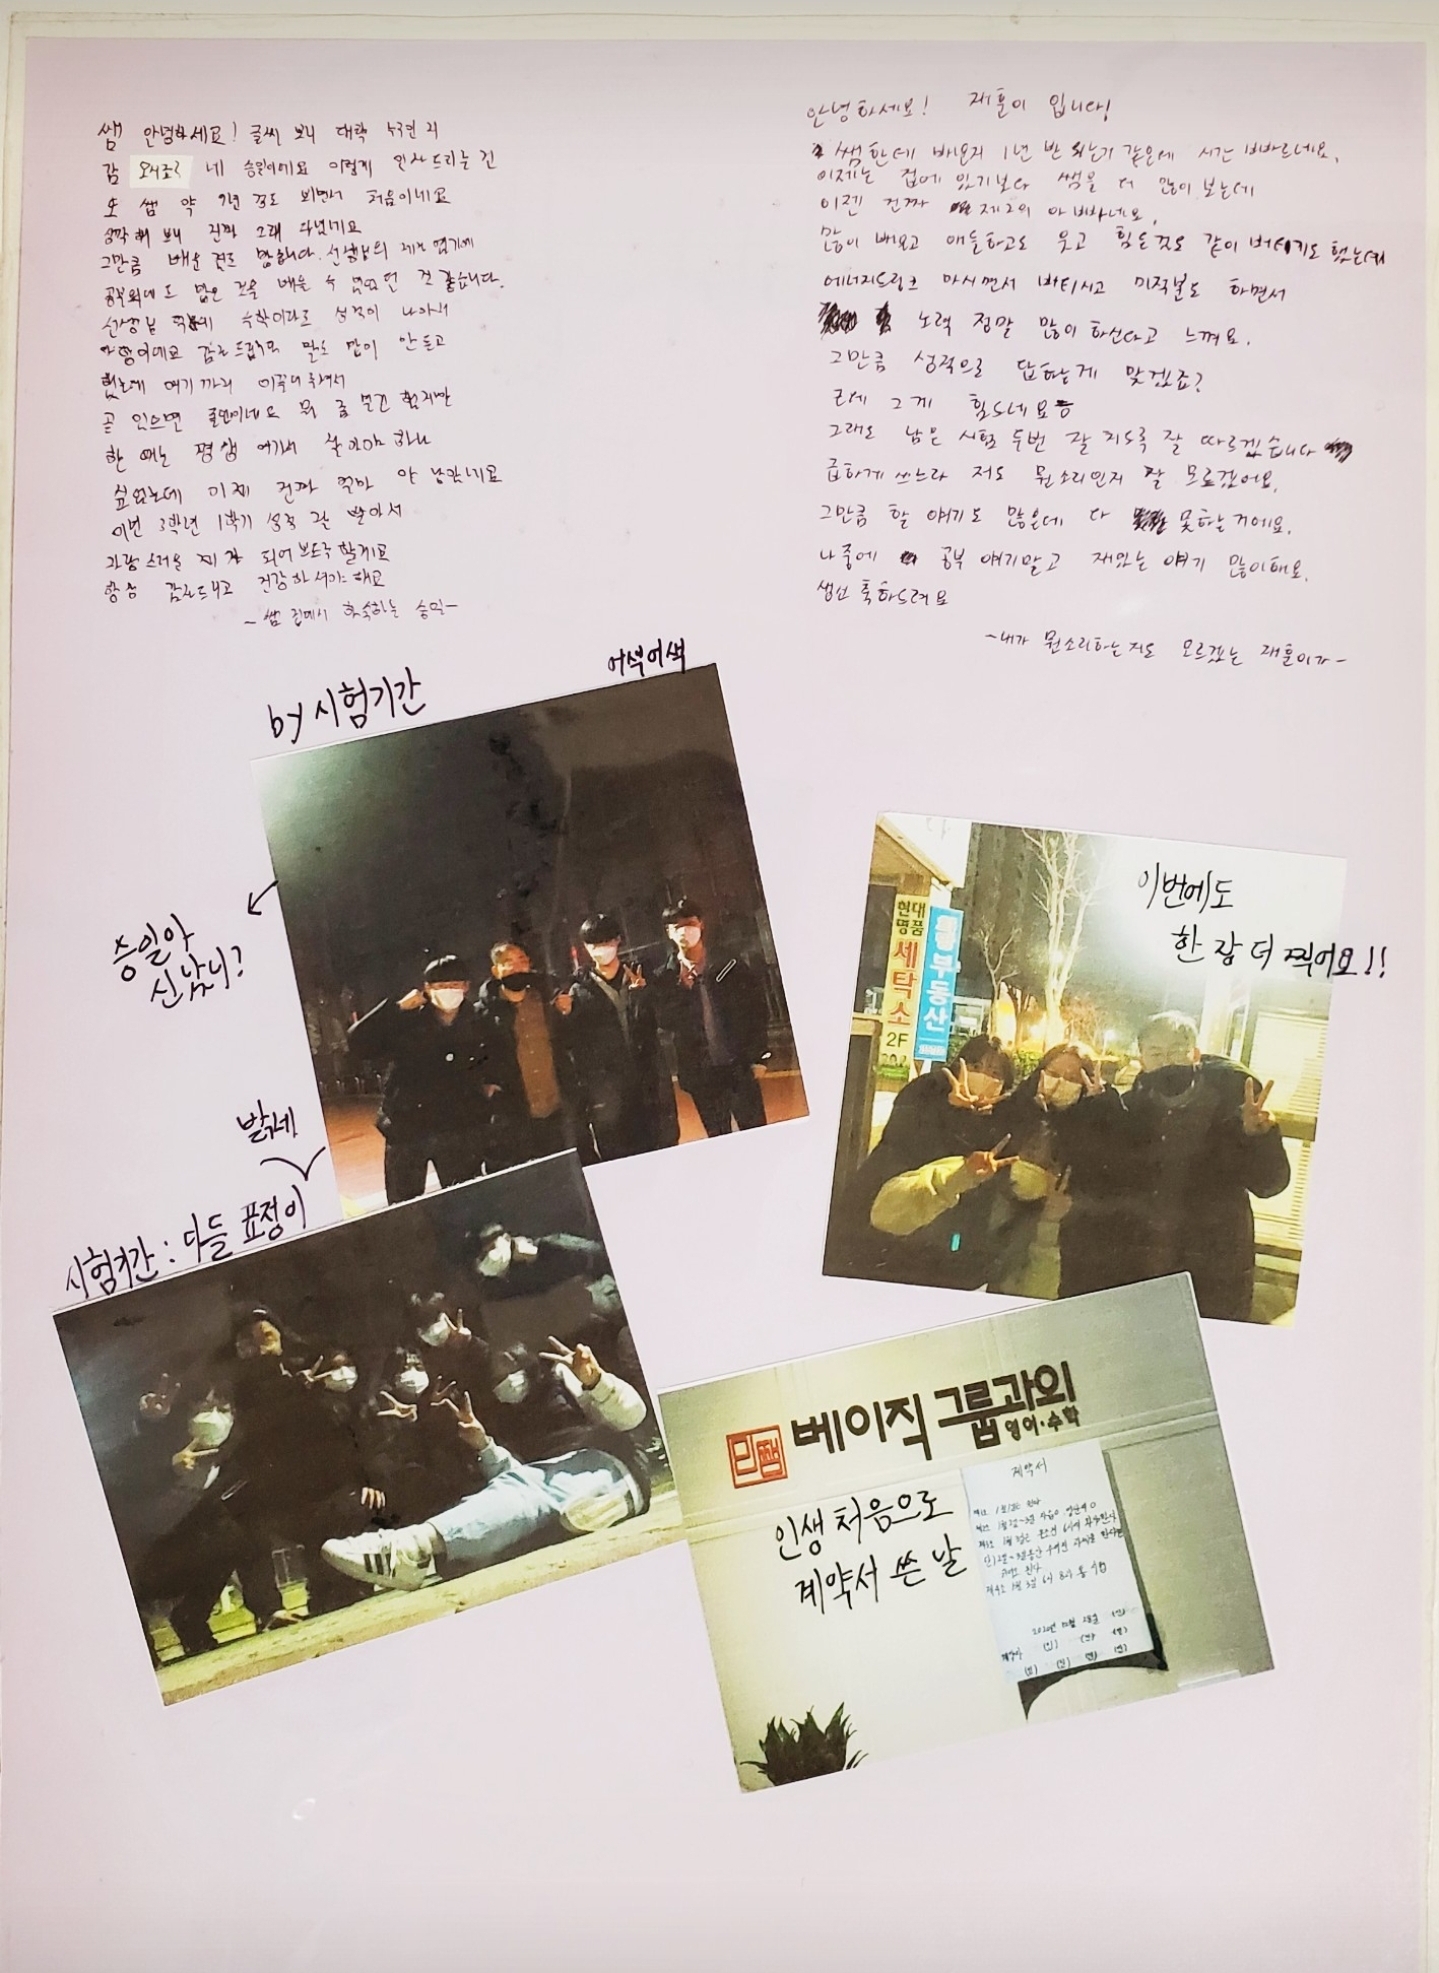 쌤 안녕하세요! 글씨 보니 대략 누구인지
감 오시죠? 네 승일이에요 이렇게 인사드리는 건
또 쌤 약 7년 정도 뵈면서 처음이네요
생각해 보니 진짜 오래 다녔네요
그만큼 배운 것도 많습니다. 선생님의 제자
공부외에도 많은 것을 배울 수 있었던 것 같습니다.
선생님 덕분에 수학이라도 성적이 나와서
다행이에요 감사드립니다 말도 많이 안 듣고
했는데 여기까지 이끌어주셔서
곧 있으면 졸업이네요 뭐 좀 멀긴 했지만
한 때는 평생 여기서 살아야 하나
싶었는데 이제 진짜 얼마 안 남았네요
이번 3학년 1학기 성적 잘 받아서
자랑스러운 제자 되어보도록 할게요
항상 감사드리고 건강하셔야 해요
~쌤 집에서 하숙하는 승일~
안녕하세요! 재훈이 입니다!
쌤한테 배운지 1년 반 되는거 같은데 시간 빠르네요.
이제는 집에 있기보다 쌤을 더 많이 보는데
이젠 진짜 제2의 아빠네요.
많이 배우고 얘들하고도 웃고 힘든것도 같이 버티기도 했는데
에너지드링크 마시면서 버티시고 미적분도 하면서
노력 정말 많이 하신다고 느껴요.
그만큼 성적으로 답하는게 맞겠죠?
근데 그게 힘드네요
그래도 남은 시험 두번 잘 치도록 잘 따르겠습니다
급하게 쓰느라 저도 뭔소리인지 잘 모르겠어요.
그만큼 할 얘기도 많은데 다 못하는거에요.
나중에 공부 얘기말고 재밌는 얘기 많이해요.
생신 축하드려요
~내가 뭔소리하는지도 모르겠는 재훈이가~
by 시험기간
어색어색
승일아
신났니?
이번에도
한 장 더 찍어요!!
현대
명품
세탁소
2F
부동산
밝네
시험기간 : 다들 표정이
베이직 그룹과외
영어·수학
인생 처음으로
계약서 쓴 날
계약서